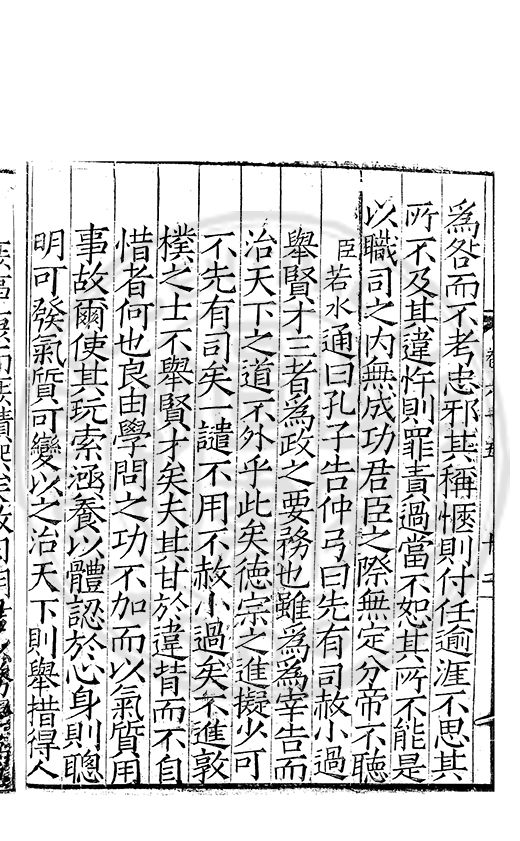 為咎而不考忠邪其稱愜則付任逾涯不思其
所不及其違忤則罪責過當不恕其所不能是
以職司之内無成功君臣之際無定分帝不聽
臣若水通曰孔子告仲弓曰先有司赦小過
舉賢才三者為政之要務也雖為為宰告而
治天下之道不外乎此矣德宗之進擬少可
不先有司矣一譴不用不赦小過矣不進敦
樸之士不舉賢才矣夫其甘於違背而不自
惜者何也良由學問之功不加而以氣質用
事故爾使其玩索涵養以體認於心身則聰
明可發氣質可變以之治天下則舉措得人